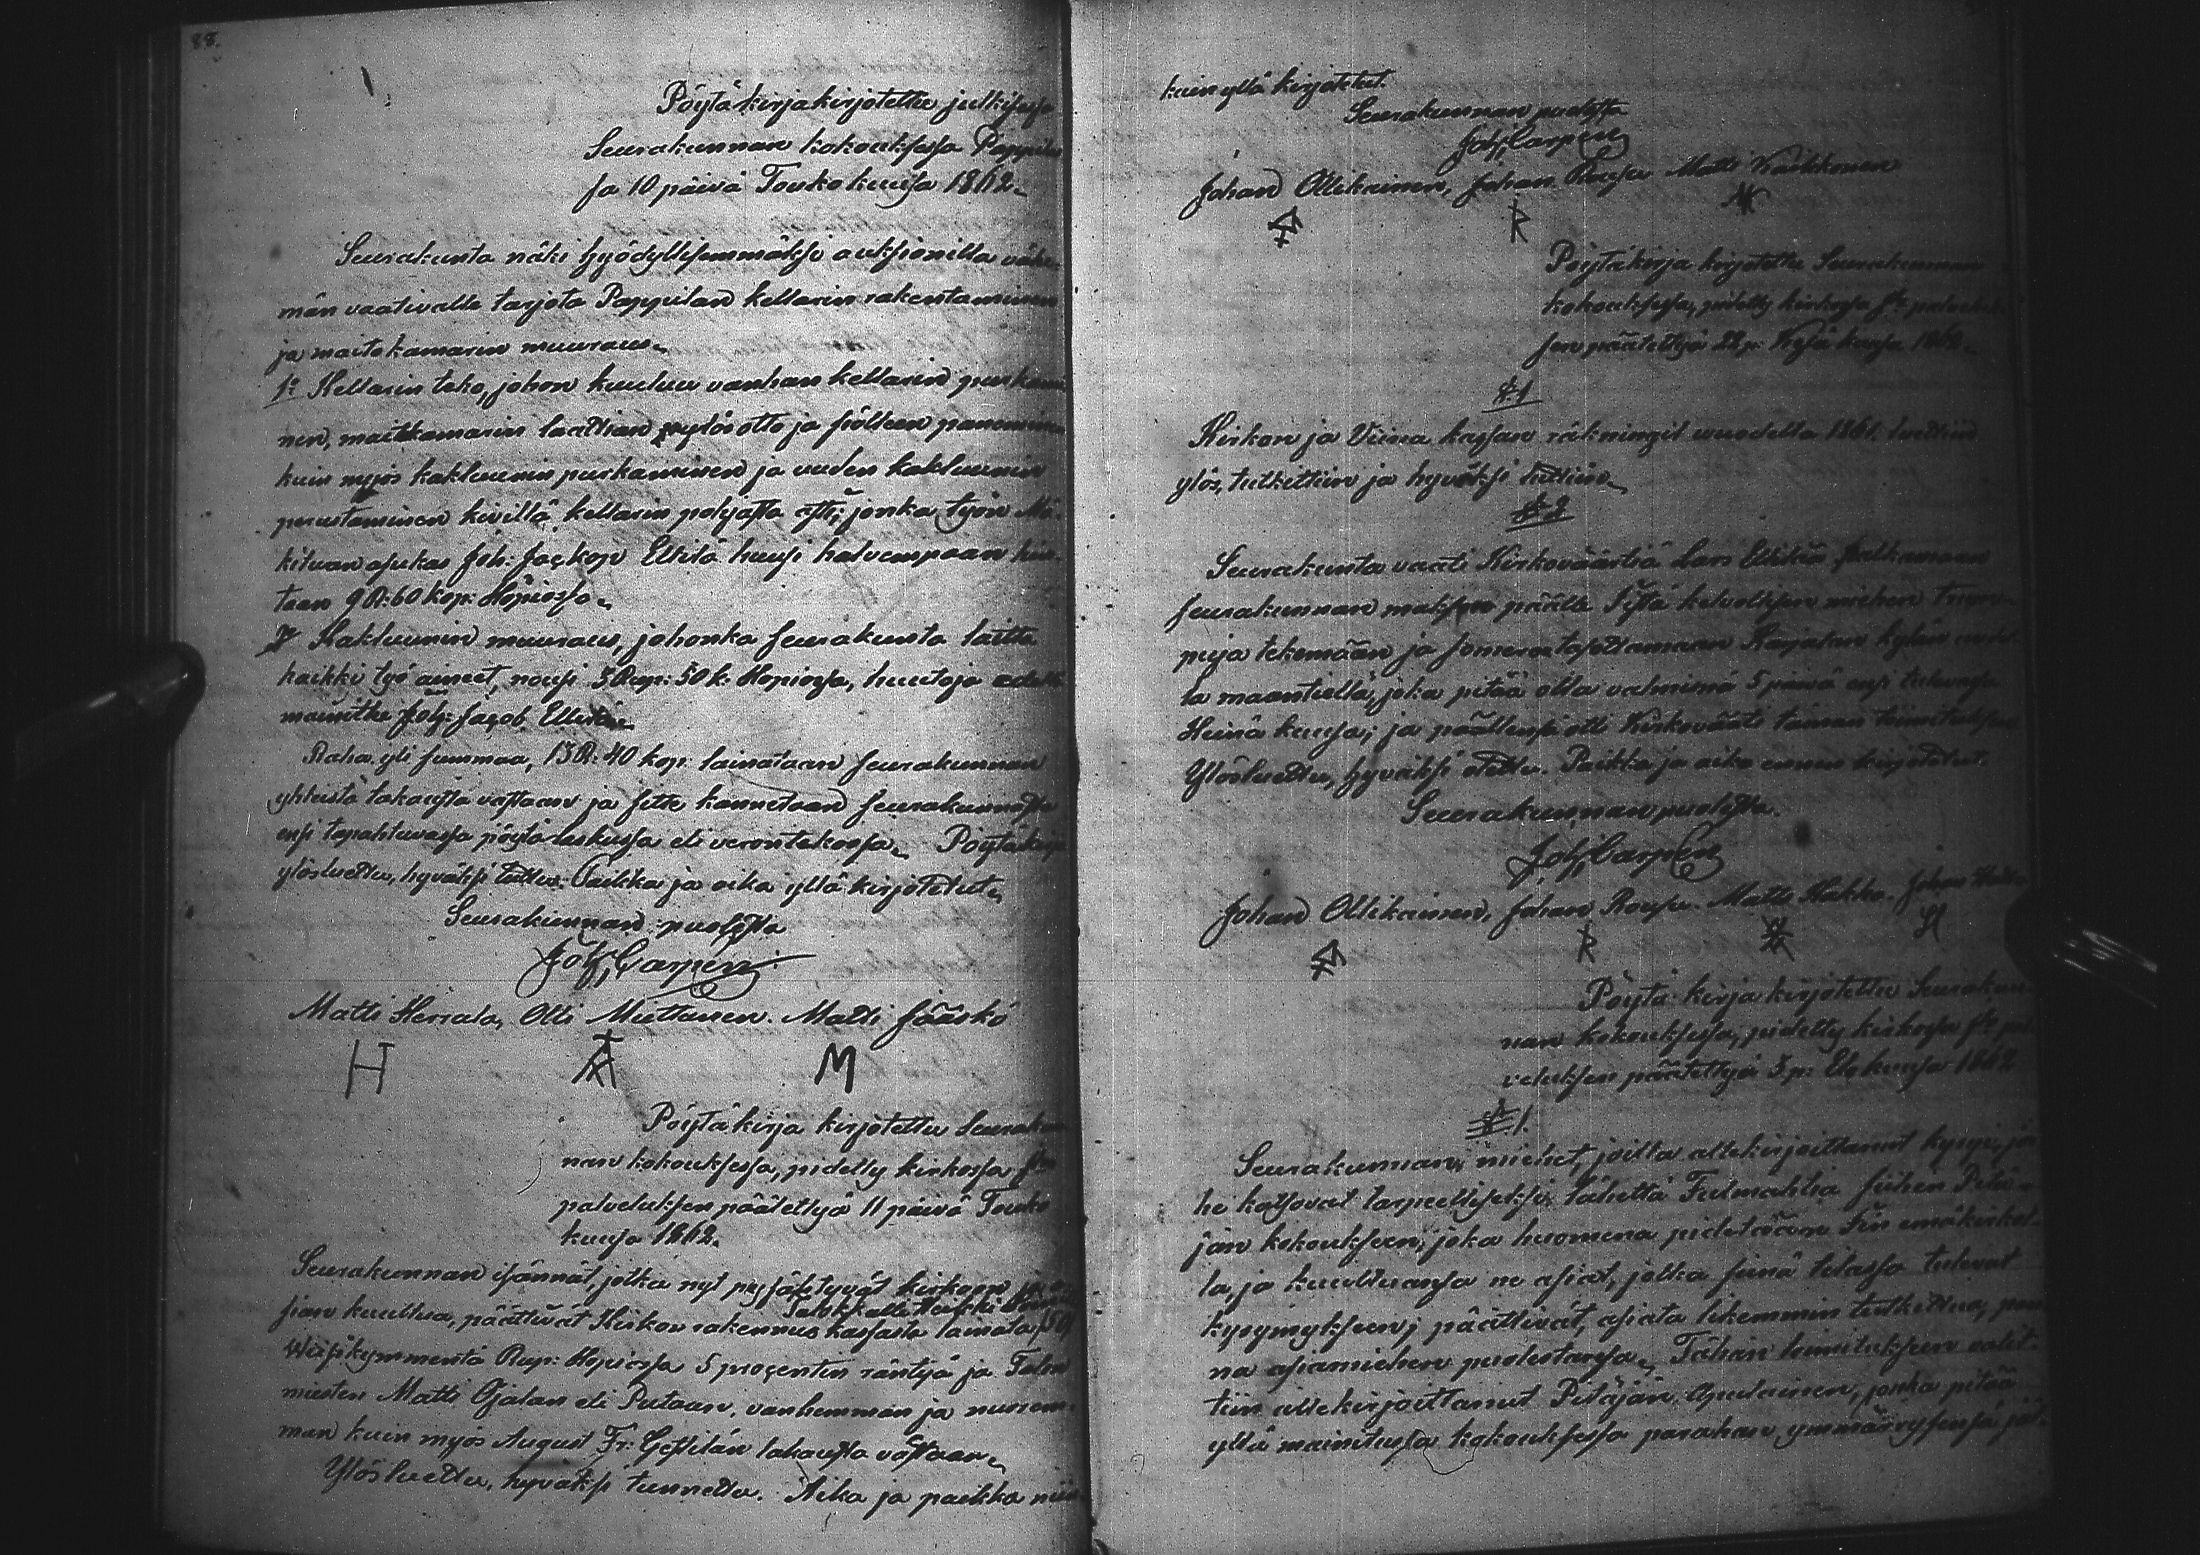 88.
Pöytäkirja kirjotettu julkisessa
Seurakunnan kokouksessa Pappilas
sa 10 päivä Toukokuusa 1862.
Seurakunta näki hyödyllisemmäksi auksionilla vähem
män vaativalle tarjota Pappilan kellarin rakentaminen
ja maitokamarin muuraus.
1o Kellarin teko, johon kuuluu vanhan kellarin purkami
nen, maitokamarin laattian ylösotto ja jälleen panominen
kuin myös kakluunin purkaminen ja uuden kakluunin
perustaminen kivillä kellarin pohjasta asti; jonka työn
asukas Joh: Jackop Ellilä huusi halvempaan hin
taan 9 R: 60 kop: Hopiossa.
2o Kakluunin muuraus, johonka seurakunta laitta
kaikki työ aineet, nousi 3 Rup: 50 k: Hopiossa, huutaja edellä
mainittu Joh: Jacob Ellilä.
Raha yli summaa, 13 R: 40 kop: lainataan seurakunnan
yhteistä takausta vastaan ja sitte kannetaan seurakunnasta
ensi tapahtuvassa pöytä laskussa eli verontakossa. Pöytäkirja
ylösluettu, hyväksi tuttu. Paikka ja aika yllä kirjotetut.
Seurakunnan puolesta
Joh. Carpén
Matti Heriala, Olli Miettunen. Matti Jääskö
H M
Pöytäkirja kirjotettu Seurakun
nan kokouksessa, pidetty kirkossa Jln
palveluksen päätettyä 11 päivä Touko
kuusa 1862.
Seurakunnan isännät, jotka nyt pysähtyvät kirkoon
sian kuultua, päättivät Kirkon rakennus kassasta lainata
Talokkalle Heikki
Wiisikymmentä Rup: Hopiossa 5 procentin räntyä ja Talon
miesten Matti Ojalan eli Putaan, vanhemman ja nuorem
man kuin myös August Fr: takausta vastaan.
Ylösluettu, hyväksi tunnettu. Aika ja paikka niin
kuin yllä kirjotetut.
Seurakunnan puolesta
Joh. Carpén
Johan Ollikainen, Johan Roupu Matti
R
Pöytäkirja kirjotettu Seurakunnan
kokouksessa, pidetty kirkossa Jln palveluk
sen päätettyä 22 p: Kesäkuusa 1862.
§ 1
Kirkon ja Viina kassan räkningit wuodelta 1861. luettiin
ylös, tutkittiin ja hyväksi tuttiin.
§ 2
Seurakunta vaati Kirkoväärtiä Lars Ellilää palkkamaan
seurakunnan maksun päälle
puja tekemään ja tasottamaan Karjalan kylän
la maantiellä, joka pitää olla valmisna 5 päivä ensi tulevassa
Heinä kuusa; ja päällensä otti Kirkoväärti tämän toimituksen
Ylösluettu, hyväksi otettu. Paikka ja aika ennen kirjotetut.
Seurakunnan puolesta.
Joh. Carpén
Johan Ollikainen, Johan Roupu. Matti Hakko. Johan
R
Pöytä kirja kirjotettu Seurakun
nan kokouksessa, pidetty kirkossa Jln pal
veluksen päätettyä 3 p: Elokuusa 1862
§ 1.
Seurakunnan miehet, joilta allekirjoittanut kysyi, jos
he katsovat tarpeelliseksi lähettä Fulmahtia siihen Pitä
jän kokoukseen, joka huomena pidetään emäkirkol
la, ja kuultuansa ne asiat, jotka siinä tilassa tulevat
kysymykseen; päättivät, asiata likemmin tutkettua, pan
na asiamiehen puolestansa. Tähän toimitukseen valit
tiin allekirjoittanut Pitäjän Apulainen, jonka pitää
yllä mainitussa kokouksessa parahan ymmärryksensä jäl